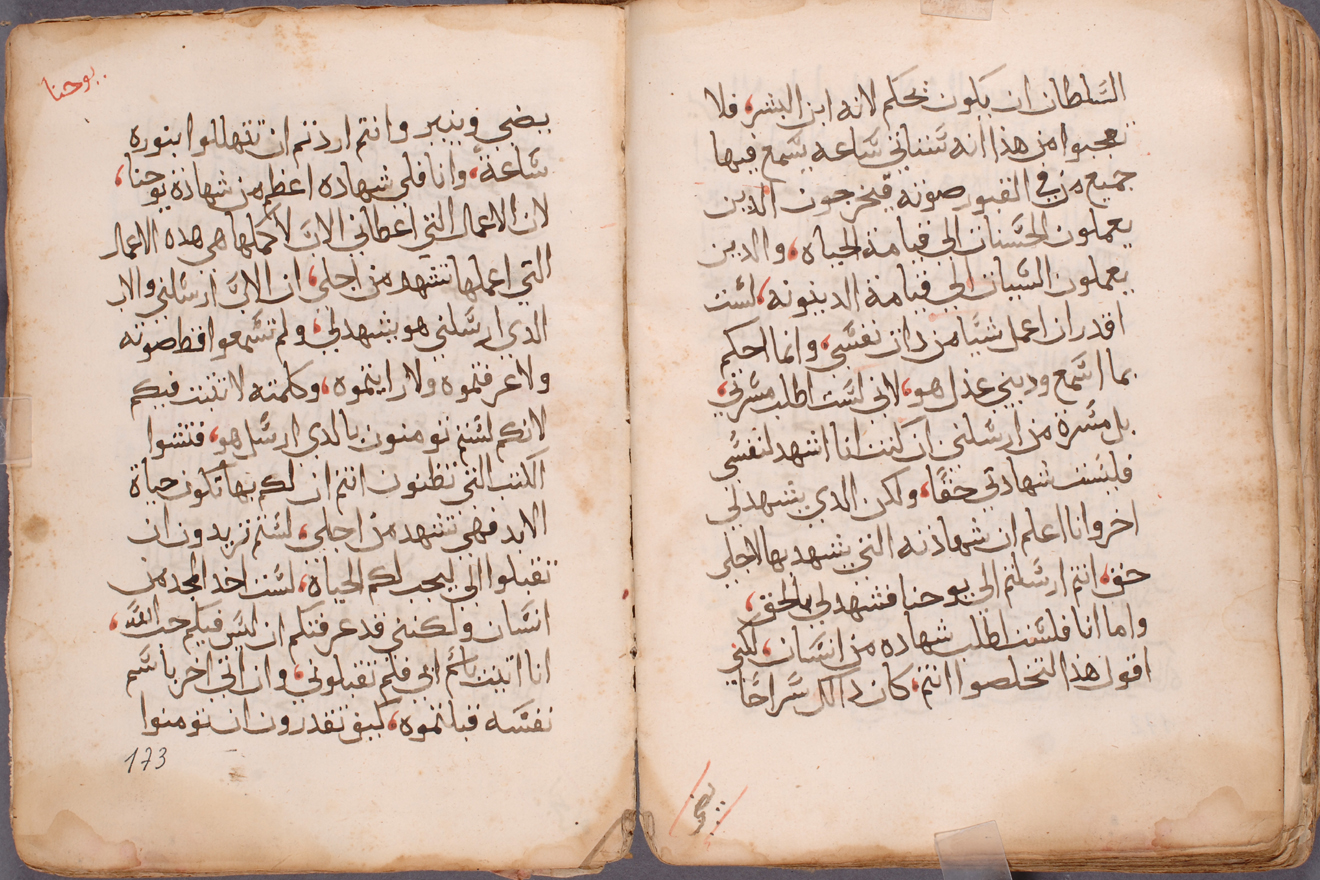 السلطان ان يكون يحكم لانه ابن البشر، فلا
تعجبوا من هذا انه ستاتي ساعه يسمع فيها
جميع من في القبور صوته فيخرجون الدين
يعملون الحسنات الى قيامة الحياه، والدين
يعملون السيات الى قيامة الدينونه، لست
اقدر ان اعمل شيا من دات نفسى، وانما احكم
بما اسمع وديني عدل هو، لاني لست اطلب مسرتي،
بل مسرة من ارسلنى ان كنت انا اشهد لنفسى
فليست شهادتي حقا، ولكن الدي يشهد لي
اخر وانا اعلم ان شهادته التي يشهد بها لاجلي
حق، انتم ارسلتم الى يوحنا فشهد لي بالحق،
واما انا فلست اطلب شهاده من انسان، لكني
اقول هذا لتخلصوا انتم، كان داك سراجًا
يضي
يوحنا
يضي وينير وانتم اردتم ان تتهللوا بنوره
ساعة، وانا فلي شهاده اعظم من شهادة يوحنا،
لان الاعمال التي اعطاني الاب لاكملها هى هده الاعمال
التي اعملها تشهد من اجلي، ان الاب ارسلني والاب
الدي ارسلني هو يشهد لي، ولم تسمعوا قط صوته
ولا عرفتموه ولا رايتموه، وكلمته لا تثبت فيكم
لانكم لستم تومنون بالدي ارسل هو، فتشوا
الكتب التي تظنون انتم ان لكم بها تكون حياة
الابد فهي تشهد من اجلي، لستم تريدون ان
تقبلوا الي ليجب لكم الحياة، لست اخد المجد من
انسان ولكنني قد عرفتكم ان ليس فيكم حب الله،
انا اتيت باسم ابي فلم تقبلوني، وان اتى اخر باسم
نفسه قبلتموه، كيف تقدرون ان تومنوا
173